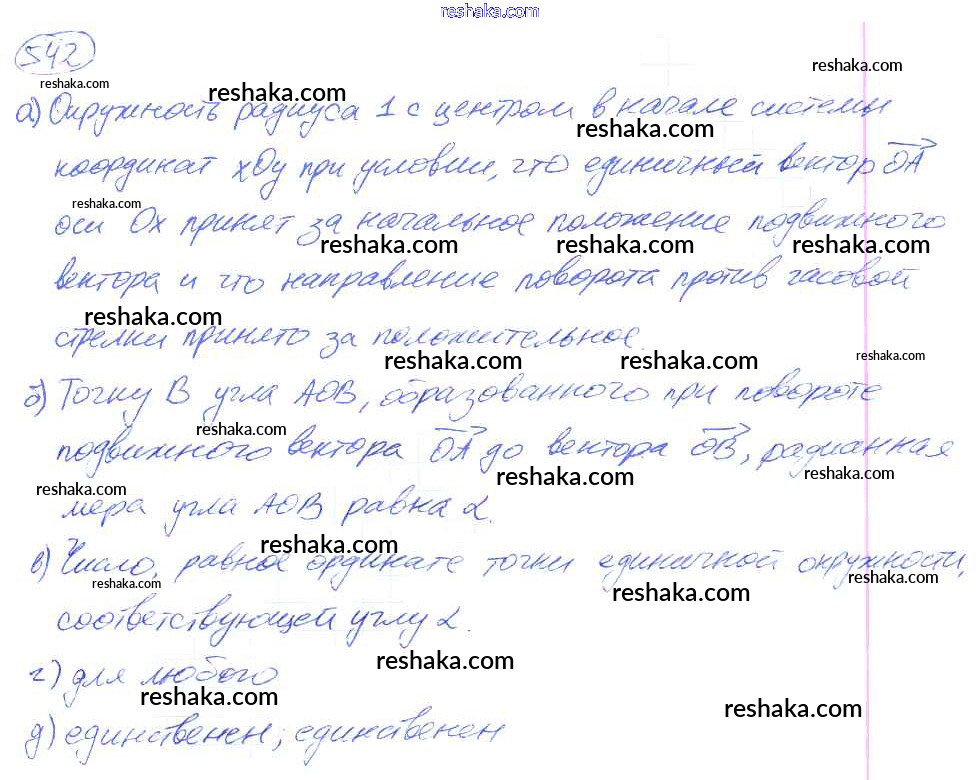 reshaka.com
542
reshaka.com
reshaka.com
reshaka.com
а) Окружность радиуса 1 с центром в начале системы
reshaka.com
координат xOy при условии, что единичный вектор OA
reshaka.com
оси Ox принят за начальное положение подвижного
reshaka.com reshaka.com reshaka.com
вектора и что направление поворота против часовой
reshaka.com
стрелки принято за положительное.
reshaka.com reshaka.com reshaka.com
б) Точку B угла AOB, образованного при повороте
reshaka.com
подвижного вектора OA до вектора OB, радианная
reshaka.com
reshaka.com
мера угла AOB равна α.
reshaka.com
в) Число, равное ординате точки единичной окружности,
reshaka.com reshaka.com
reshaka.com
соответствующей углу α.
reshaka.com
г) для любого
reshaka.com
reshaka.com
д) единственен; единственен